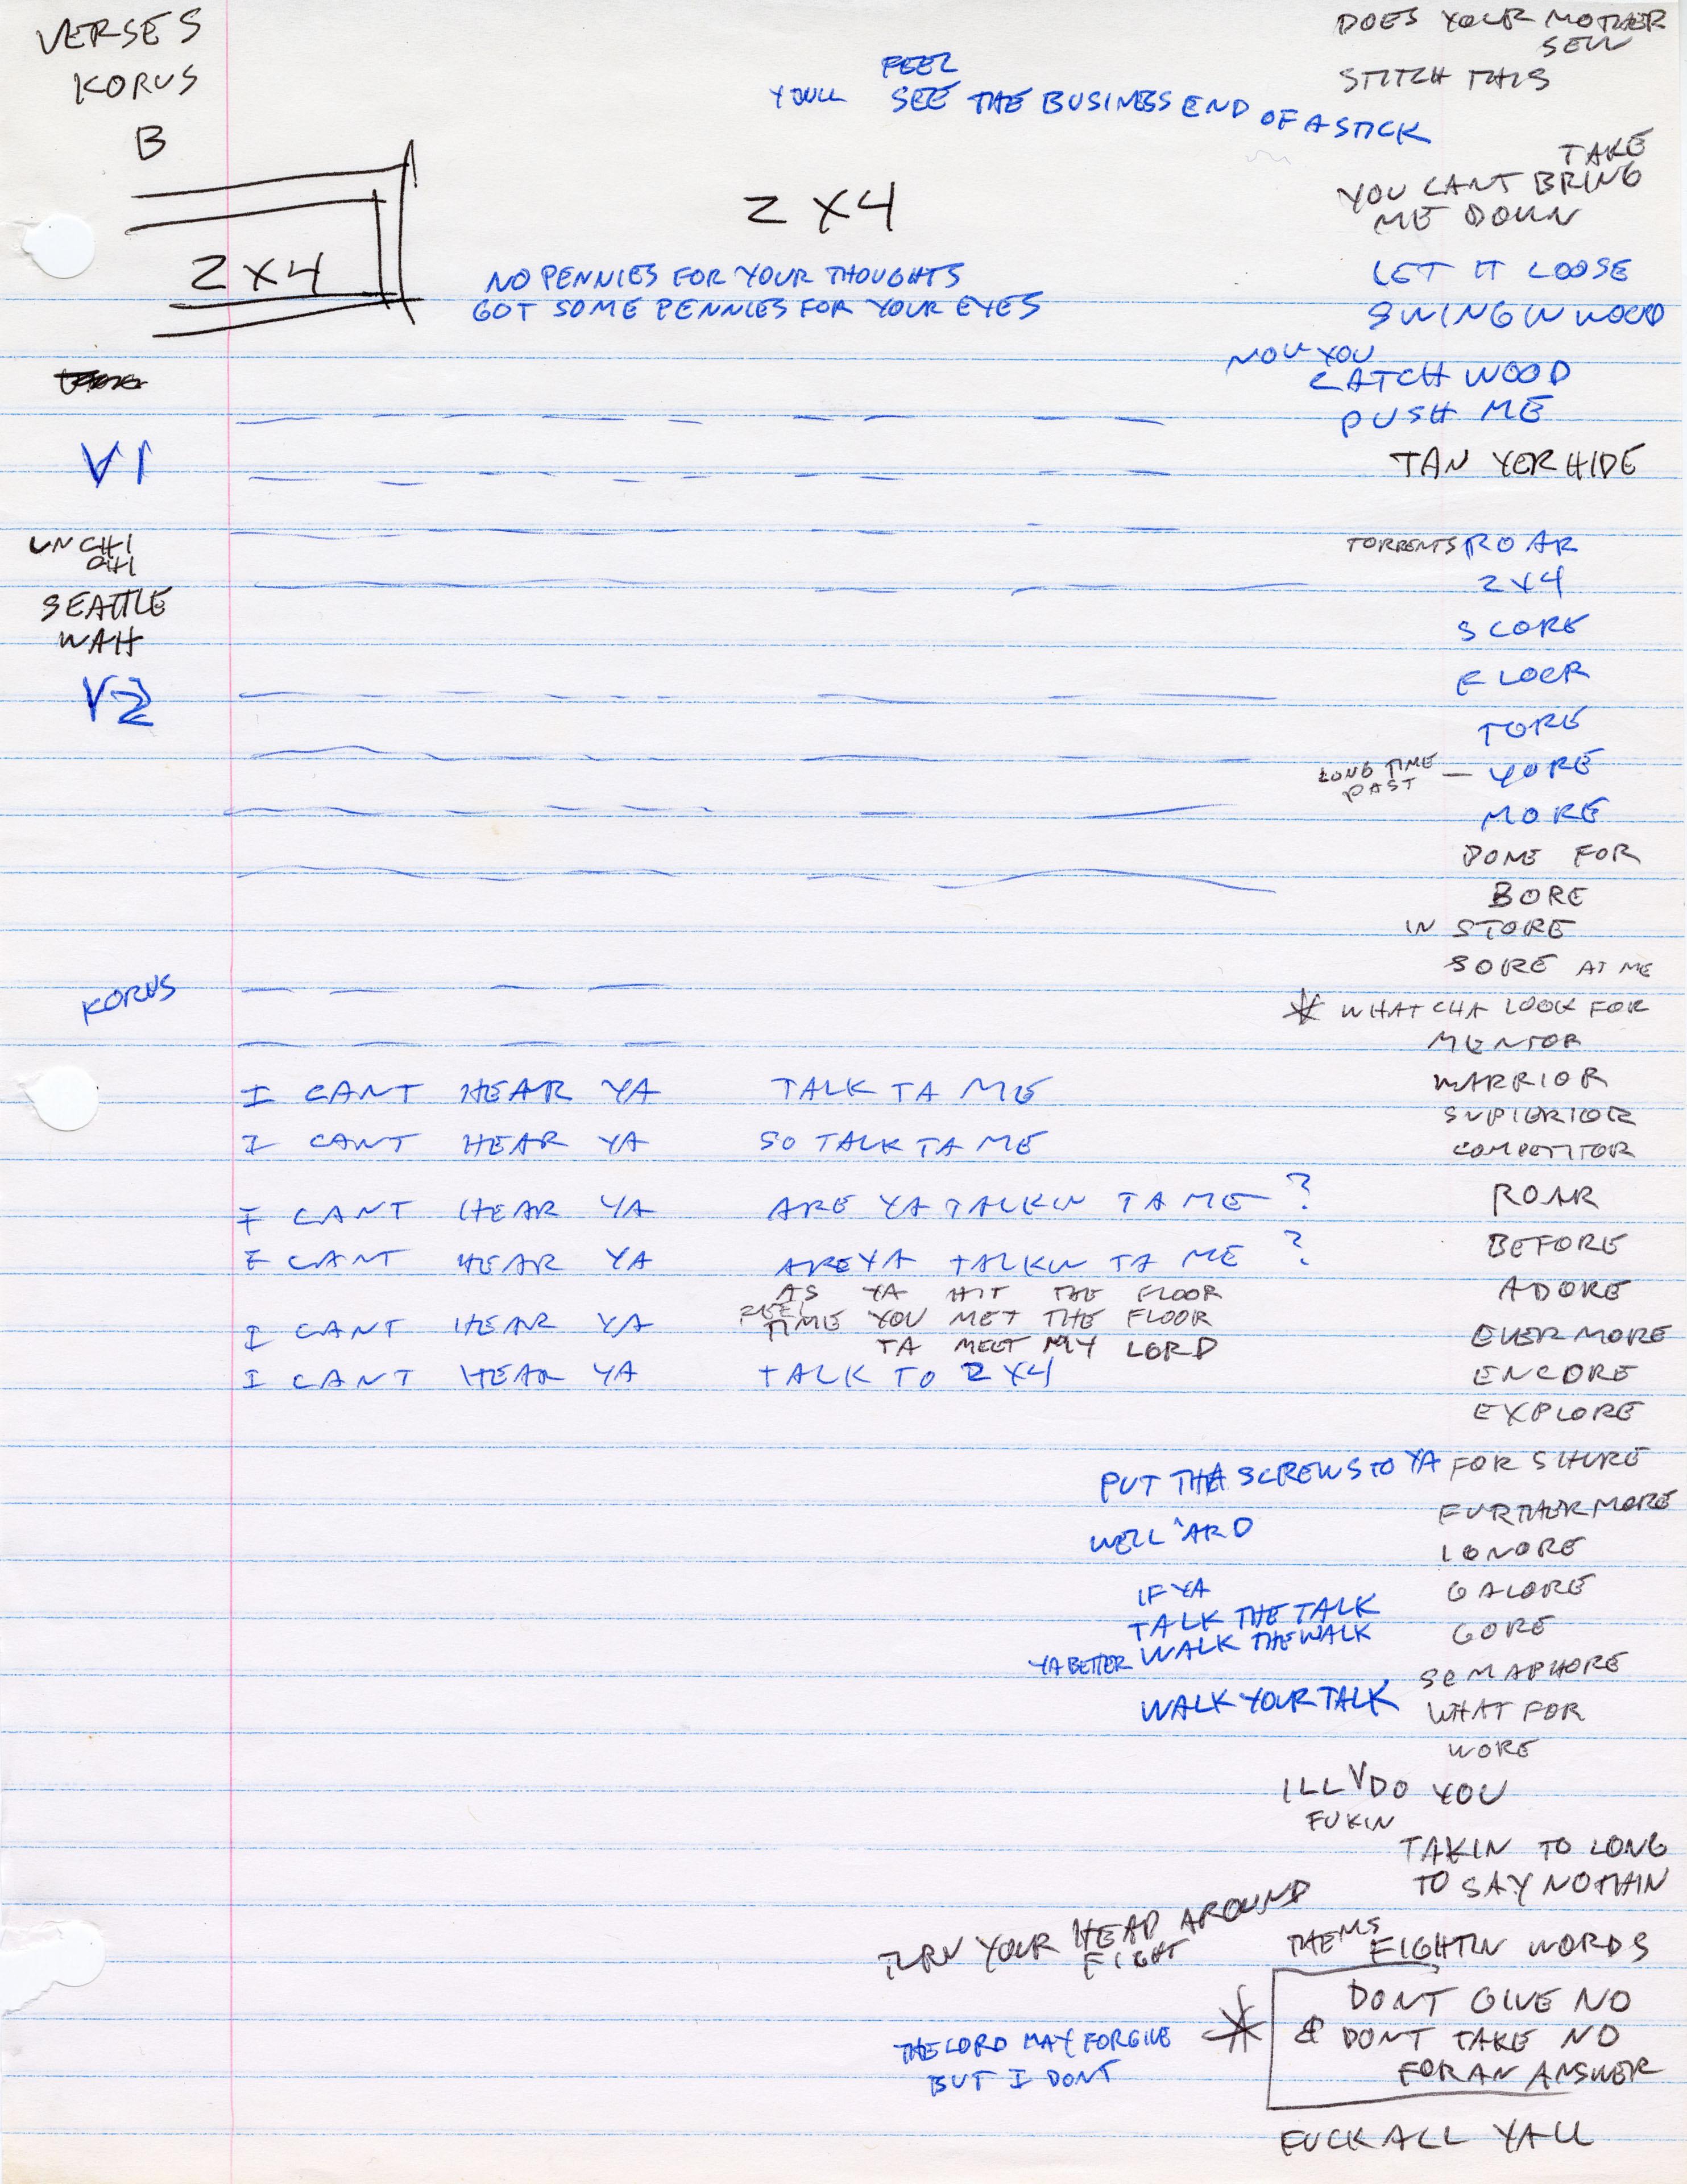 VERSES
KORUS
B
2X4
2X4
FEEL
YOULL SEE THE BUSINESS END OF A STICK
NO PENNIES FOR YOUR THOUGHTS
GOT SOME PENNIES FOR YOUR EYES
DOES YOUR MOTHER
SEW
STITCH THIS
TAKE
YOU CANT BRING
ME DOWN
LET IT LOOSE
SWINGIN WOOD
NOW YOU
CATCH WOOD
PUSH ME
TAN YER HIDE
V1
UNCHI
CHI
SEATTLE
WAH
V2
TORRENTS ROAR
2X4
SCORE
FLOOR
TORE
LONG TIME
PAST — YORE
MORE
DONE FOR
BORE
IN STORE
SORE AT ME
* WHATCHA LOOK FOR
MENTOR
WARRIOR
SUPIERIOR
COMPETITOR
ROAR
BEFORE
ADORE
EVERMORE
ENCORE
EXPLORE
FOR SHURE
FURTHERMORE
IGNORE
GALORE
GORE
SEMAPHORE
WHAT FOR
WORE
KORUS
I CANT HEAR YA TALK TA ME
I CANT HEAR YA SO TALK TA ME
I CANT HEAR YA ARE YA TALKIN TA ME ?
I CANT HEAR YA ARE YA TALKIN TA ME ?
AS YA HIT THE FLOOR
I CANT HEAR YA TIME YOU MET THE FLOOR
TA MEET MY LORD
I CANT HEAR YA TALK TO 2X4
PUT THA SCREWS TO YA
WELL 'ARD
IF YA
TALK THE TALK
YA BETTER WALK THE WALK
WALK YOUR TALK
ILL V DO YOU
FUKIN
TAKIN TO LONG
TO SAY NOTHIN
TURN YOUR HEAD AROUND
FIGHT
THEMS FIGHTIN WORDS
* DONT GIVE NO
& DONT TAKE NO
FOR AN ANSWER
THE LORD MAY FORGIVE
BUT I DONT
FUCK ALL YALL